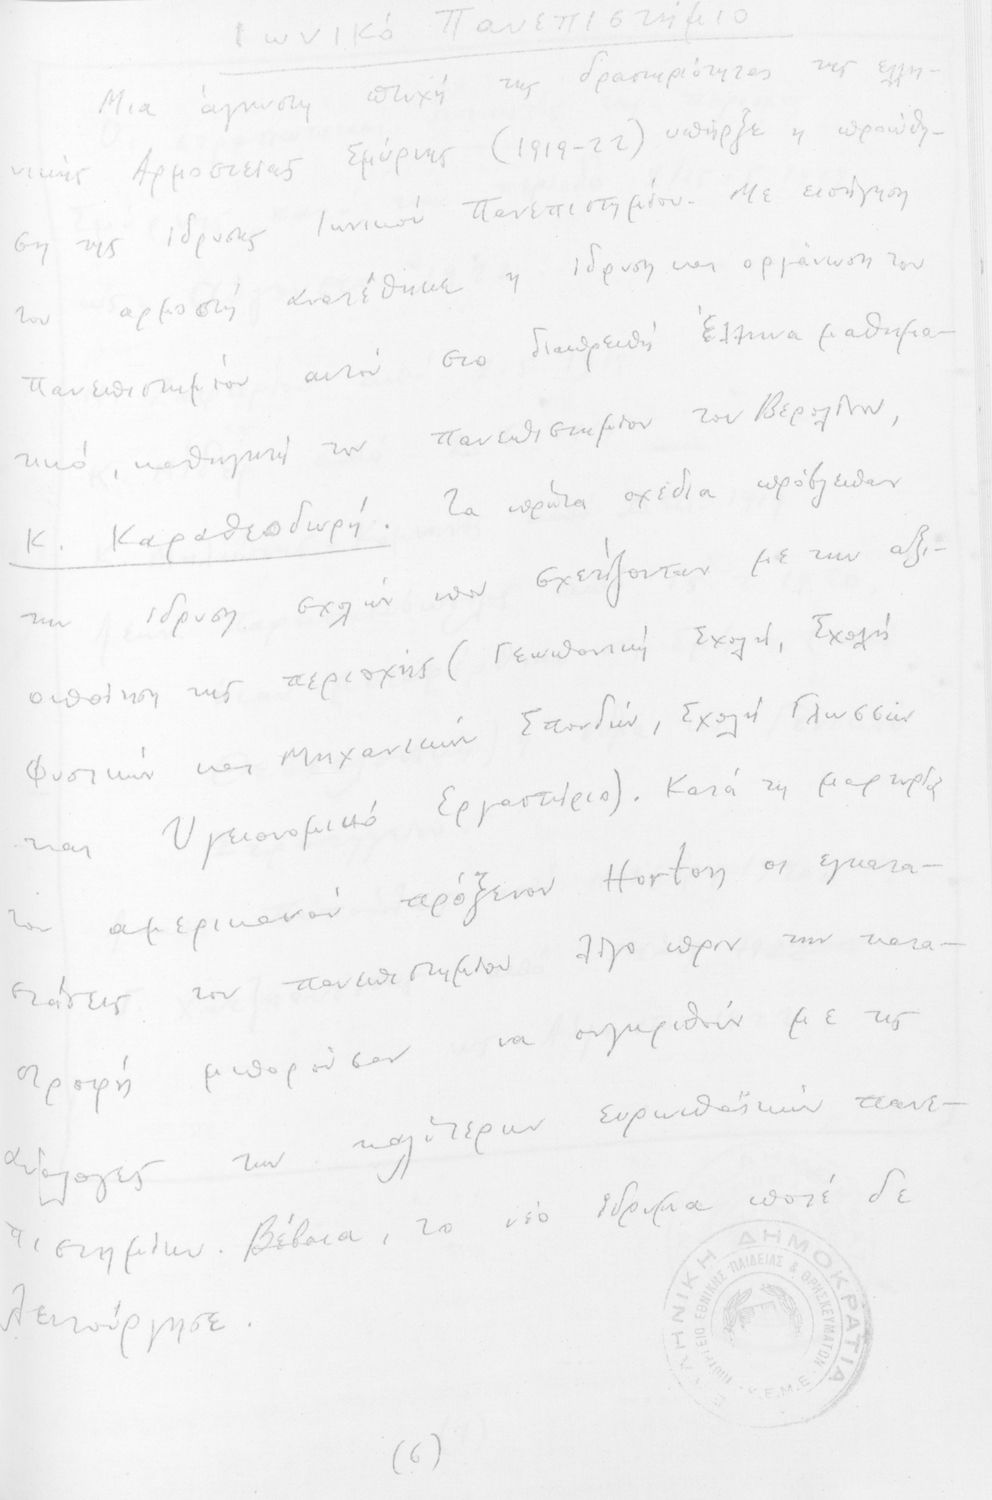 Ιωνικό Πανεπιστήμιο
Μια άγνωστη πτυχή της δραστηριότητας της ελλη-
νικής Αρμοστείας Σμύρνης (1919-22) υπήρξε η προώθη-
ση της ίδρυσης Ιωνικού Πανεπιστημίου. Με εισήγηση
του αρμοστή ανατέθηκε η ίδρυση και οργάνωση του
Πανεπιστημίου αυτού στο διαπρεπή Έλληνα μαθημα-
τικό, καθηγητή του Πανεπιστημίου του Βερολίνου,
Κ. Καραθεοδωρή. Τα πρώτα σχέδια πρόβλεπαν
την ίδρυση σχολών που σχετίζονταν με την αξι-
οποίηση της περιοχής (Γεωπονική Σχολή, Σχολή
Φυσικών και Μηχανικών Σπουδών, Σχολή Γλωσσών
και Υγειονομικό Εργαστήριο). Κατά τη μαρτυρία
του αμερικανού πρόξενου Horton οι εγκατα-
στάσεις του πανεπιστημίου λίγο πριν την κατα-
στροφή μπορούσαν να συγκριθούν με τις
ανάλογες των καλύτερων ευρωπαϊκών πανε-
πιστημίων. Βέβαια, το νέο ίδρυμα ποτέ δε
λειτούργησε.
ΕΛΛΗΝΙΚΗ ΔΗΜΟΚΡΑΤΙΑ
ΥΠΟΥΡΓΕΙΟ ΕΘΝΙΚΗΣ ΠΑΙΔΕΙΑΣ & ΘΡΗΣΚΕΥΜΑΤΩΝ
Κ.Ε.Μ.Ε.
(6)